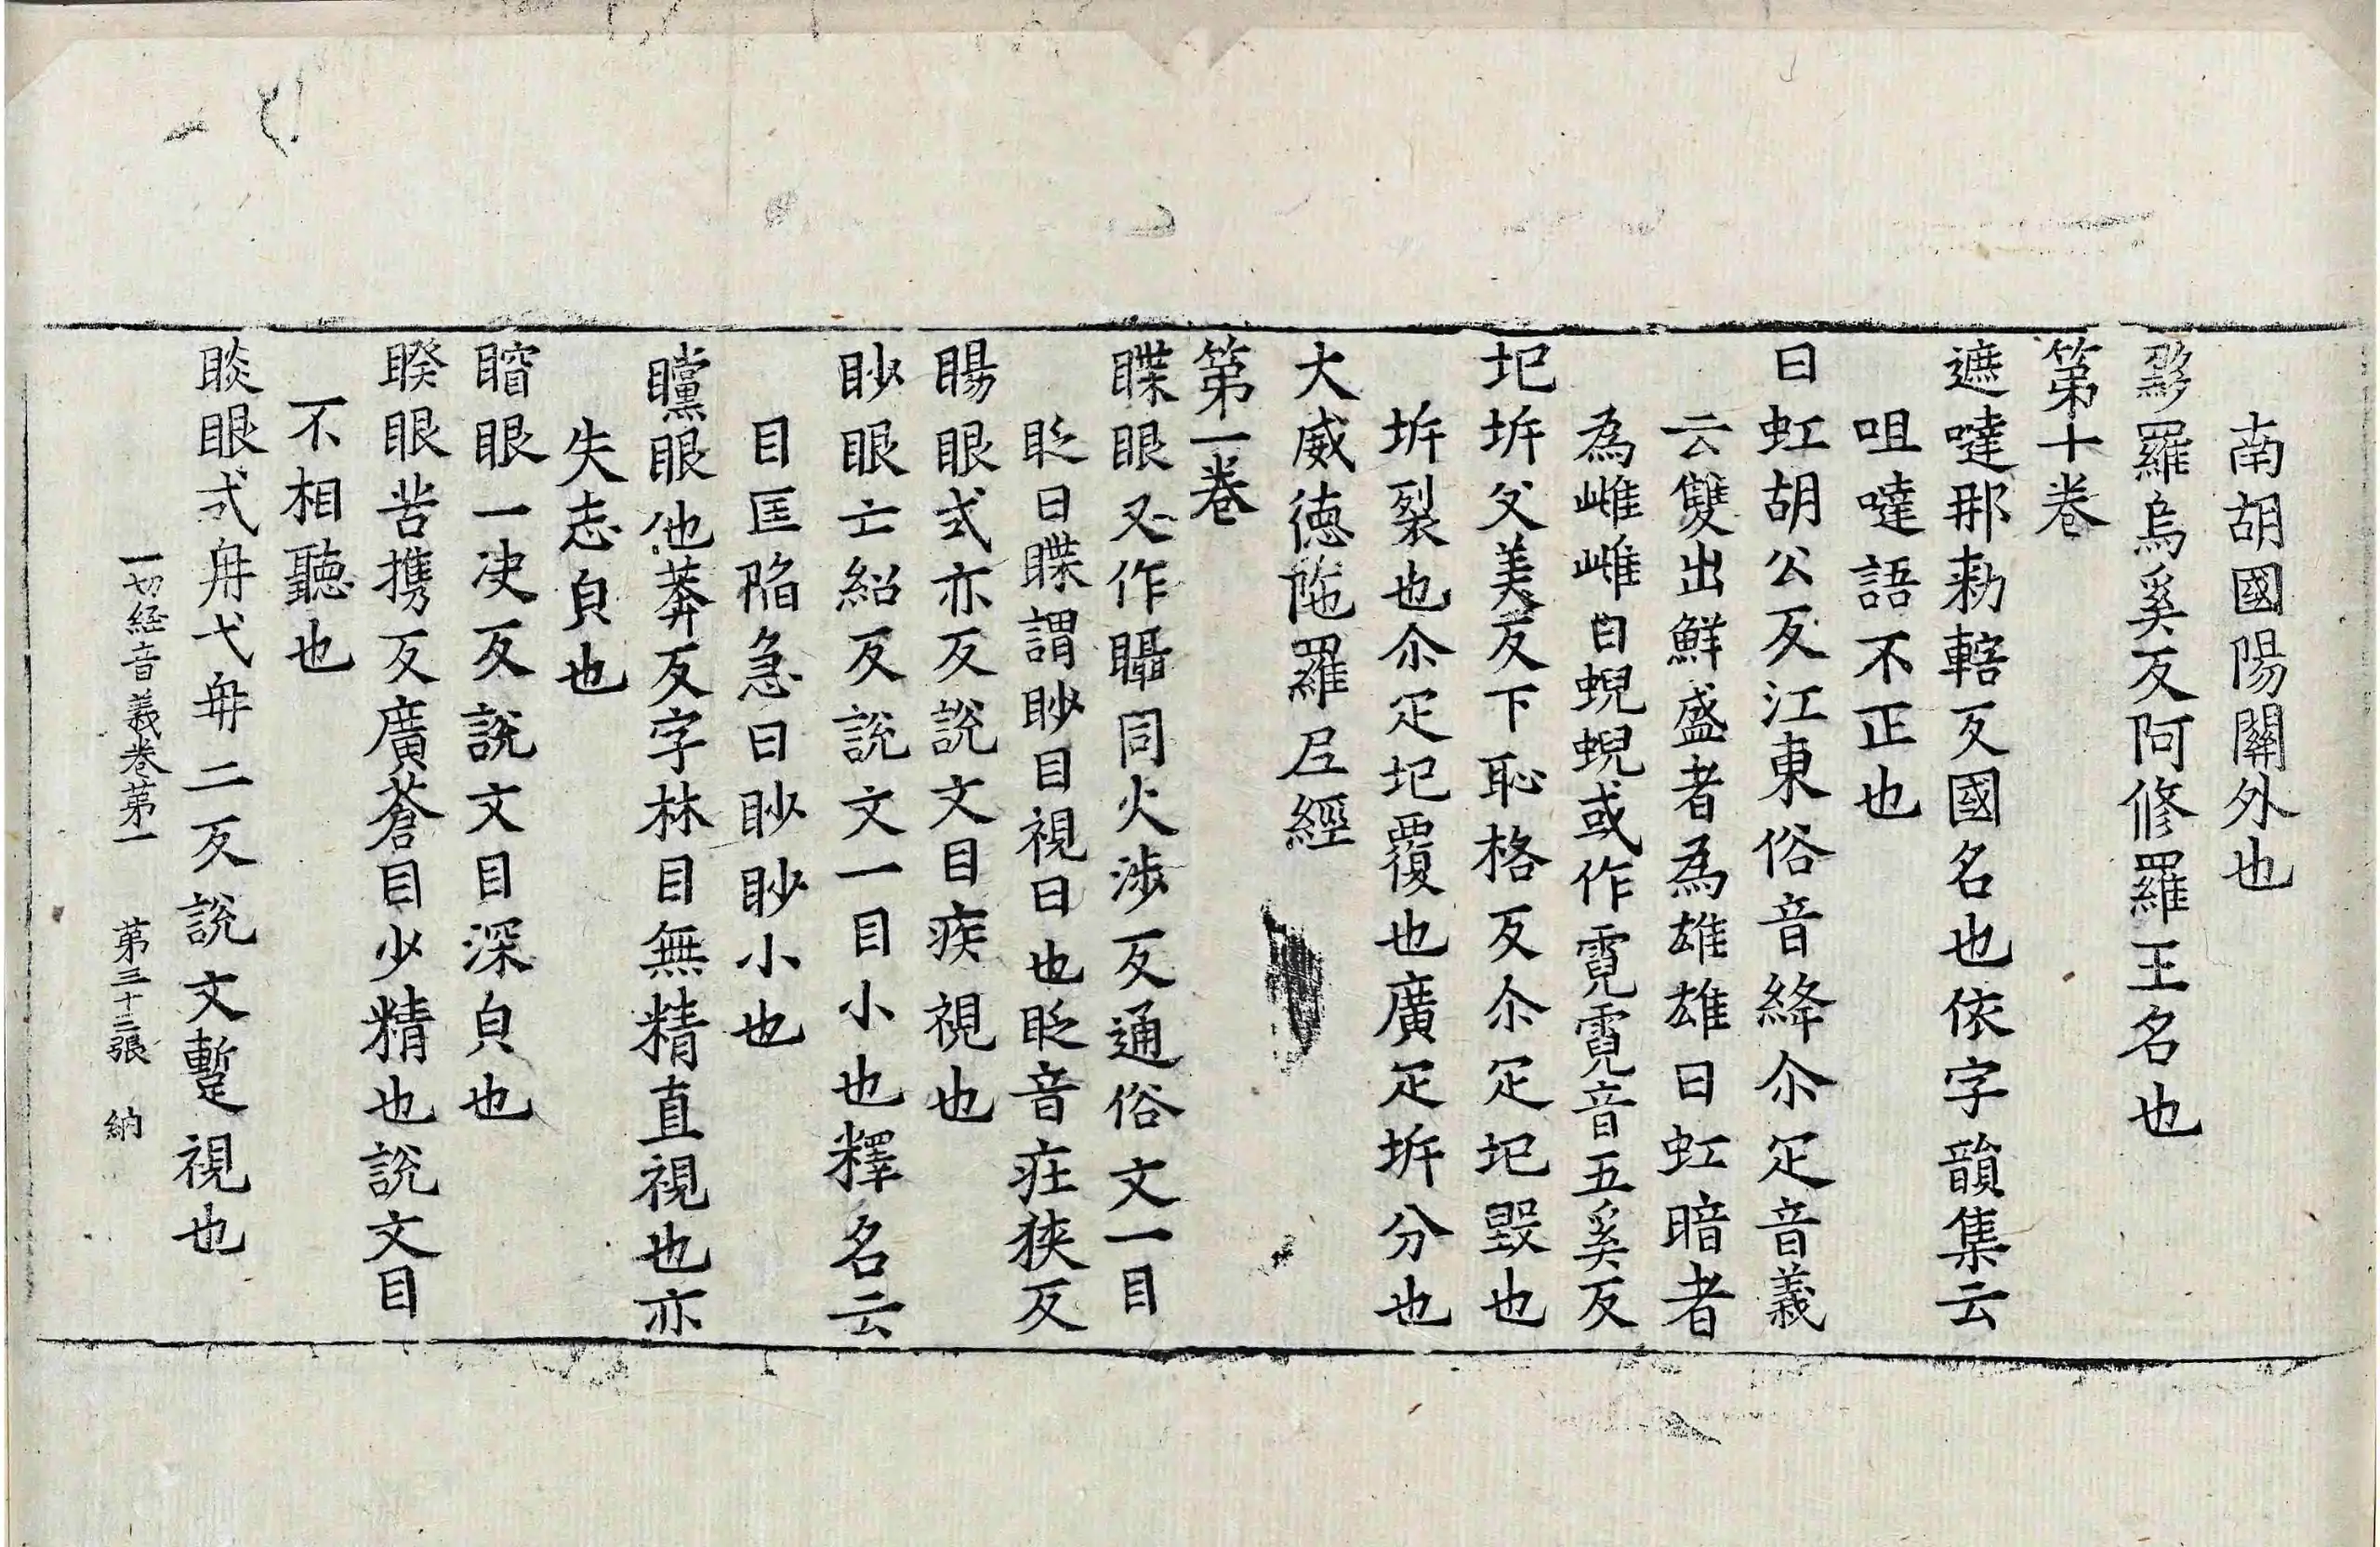 南胡國陽關外也
黟羅烏奚反阿修羅王名也
第十卷
遮噠那勑轄反國名也依字韻集云
咀噠語不正也
曰虹胡公反江東俗音絳尒疋音義
云雙出鮮盛者為雄雄曰虹暗者
為雌雌曰蜺蜺或作霓霓音五奚反
圯坼父美反下恥格反尒疋圯毀也
坼裂也尒疋圯覆也廣疋坼分也
大威德陁羅尼經
第一卷
䁋眼又作㬤同火涉反通俗文一目
眨曰䁋謂眇目視曰也眨音疰狹反
睗眼式亦反說文目疾視也
眇眼亡紹反說文一目小也釋名云
目匡陷急曰眇眇小也
矘眼他莽反字林目無精直視也亦
失志皃也
窅眼一決反說文目深皃也
睽眼苦攜反廣蒼目少精也說文目
不相聽也
睒眼式冉弋冉二反說文蹔視也
一切経音義卷第一　第三十二張　納